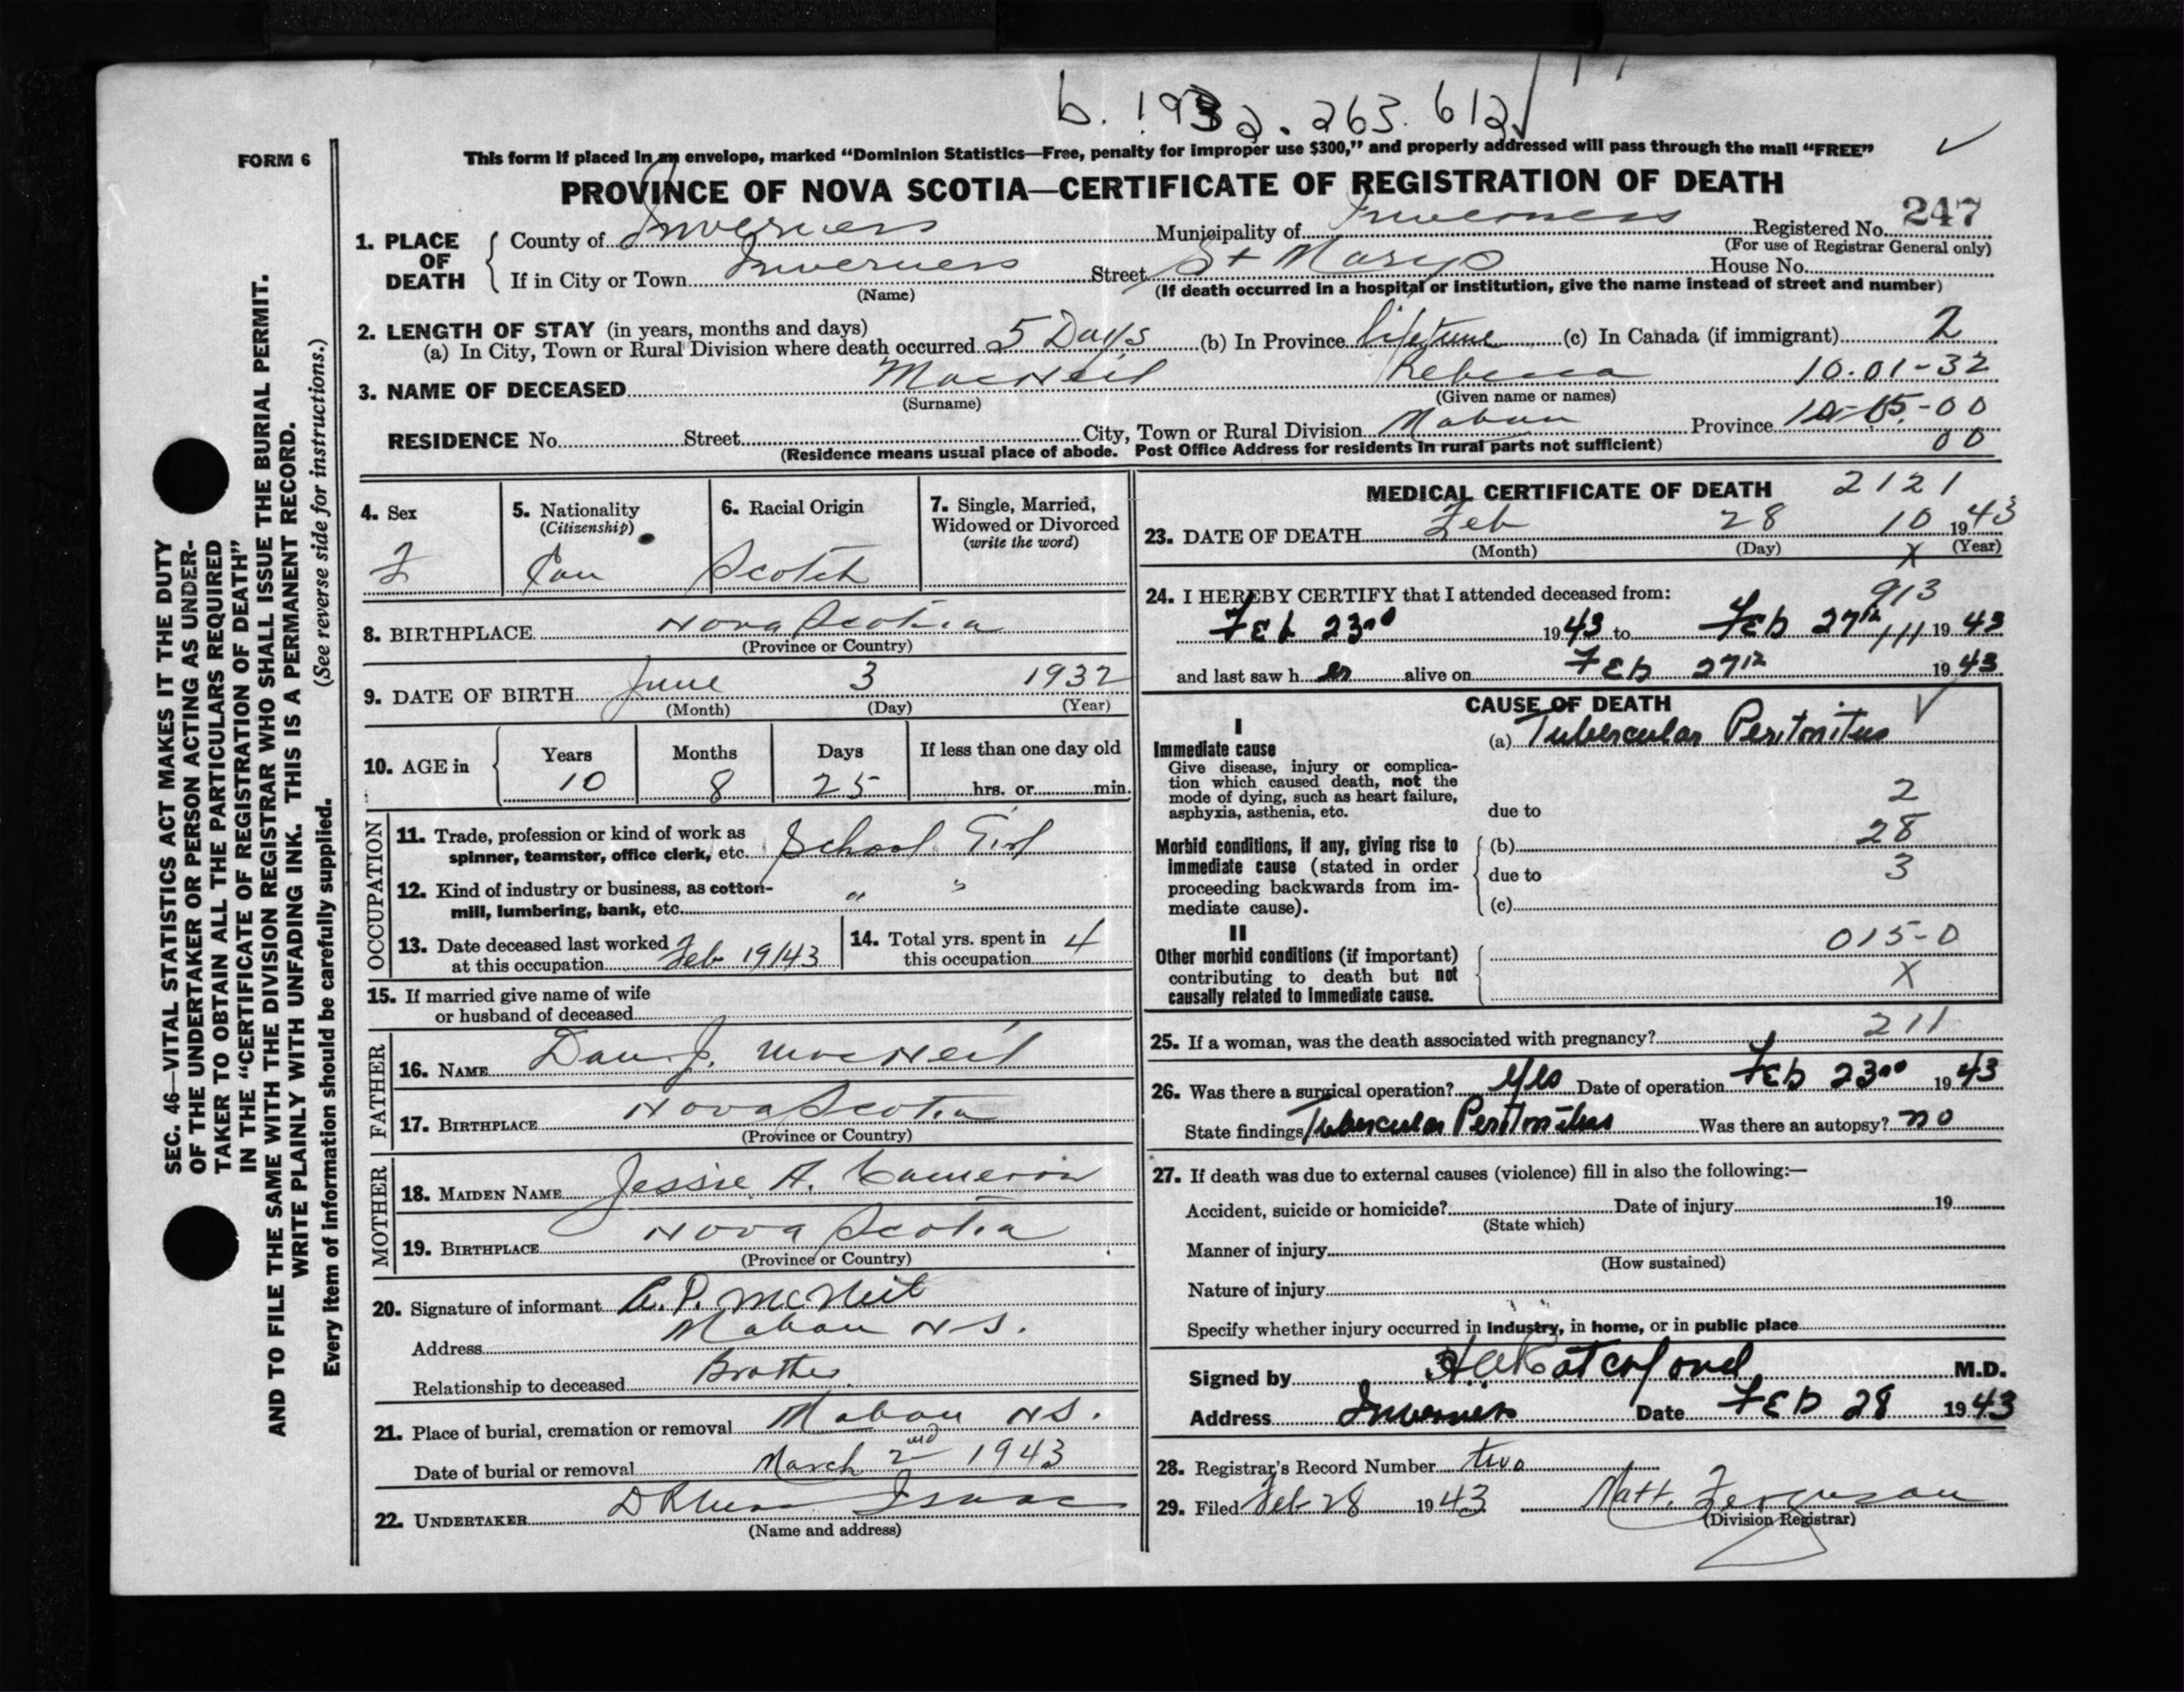 b. 1932. 263. 612
FORM 6
This form if placed in an envelope, marked "Dominion Statistics—Free, penalty for improper use $300," and properly addressed will pass through the mail "FREE"
PROVINCE OF NOVA SCOTIA—CERTIFICATE OF REGISTRATION OF DEATH
1. PLACE OF DEATH
County of Inverness Municipality of Inverness Registered No. 247
(For use of Registrar General only)
If in City or Town Inverness Street St Marys House No.
(Name) (If death occurred in a hospital or institution, give the name instead of street and number)
2. LENGTH OF STAY (in years, months and days)
(a) In City, Town or Rural Division where death occurred 5 Days (b) In Province lifetime (c) In Canada (if immigrant) 2
3. NAME OF DECEASED MacNeil Rebecca 10.01-32
(Surname) (Given name or names)
RESIDENCE No. Street City, Town or Rural Division Mabou Province 10-05-00
(Residence means usual place of abode. Post Office Address for residents in rural parts not sufficient) 00
SEC. 46—VITAL STATISTICS ACT MAKES IT THE DUTY
OF THE UNDERTAKER OR PERSON ACTING AS UNDER-
TAKER TO OBTAIN ALL THE PARTICULARS REQUIRED
IN THE "CERTIFICATE OF REGISTRATION OF DEATH"
AND TO FILE THE SAME WITH THE DIVISION REGISTRAR WHO SHALL ISSUE THE BURIAL PERMIT.
WRITE PLAINLY WITH UNFADING INK. THIS IS A PERMANENT RECORD.
Every item of information should be carefully supplied. (See reverse side for instructions.)
4. Sex
F
5. Nationality
(Citizenship)
Can
6. Racial Origin
Scotch
7. Single, Married,
Widowed or Divorced
(write the word)
8. BIRTHPLACE Nova Scotia
(Province or Country)
9. DATE OF BIRTH June 3 1932
(Month) (Day) (Year)
10. AGE in
Years Months Days If less than one day old
10 8 25 hrs. or min.
OCCUPATION
11. Trade, profession or kind of work as
spinner, teamster, office clerk, etc. School Girl
12. Kind of industry or business, as cotton-
mill, lumbering, bank, etc. " "
13. Date deceased last worked
at this occupation Feb 19/43
14. Total yrs. spent in
this occupation 4
15. If married give name of wife
or husband of deceased
FATHER
16. NAME Dan J. MacNeil
17. BIRTHPLACE Nova Scotia
(Province or Country)
MOTHER
18. MAIDEN NAME Jessie A. Cameron
19. BIRTHPLACE Nova Scotia
(Province or Country)
20. Signature of informant A. P. McNeil
Address Mabou N S.
Relationship to deceased Brother
21. Place of burial, cremation or removal Mabou N S.
Date of burial or removal March 2nd 1943
22. UNDERTAKER Isaac
(Name and address)
MEDICAL CERTIFICATE OF DEATH 2121
23. DATE OF DEATH Feb 28 10 1943
(Month) (Day) X (Year)
24. I HEREBY CERTIFY that I attended deceased from: 913
Feb 23rd 1943 to Feb 27th 111 1943
and last saw h er alive on Feb 27th 1943
CAUSE OF DEATH
I
Immediate cause
Give disease, injury or complica-
tion which caused death, not the
mode of dying, such as heart failure,
asphyxia, asthenia, etc.
(a) Tubercular Peritonitus
due to 2
Morbid conditions, if any, giving rise to
immediate cause (stated in order
proceeding backwards from im-
mediate cause).
(b) 28
due to 3
(c)
II
Other morbid conditions (if important)
contributing to death but not
causally related to immediate cause.
015-0
X
25. If a woman, was the death associated with pregnancy? 211
26. Was there a surgical operation? Yes Date of operation Feb 23rd 1943
State findings Tubercular Peritonitus Was there an autopsy? no
27. If death was due to external causes (violence) fill in also the following:—
Accident, suicide or homicide? Date of injury 19
(State which)
Manner of injury
(How sustained)
Nature of injury
Specify whether injury occurred in industry, in home, or in public place
Signed by H A Ratchford M.D.
Address Inverness Date Feb 28 1943
28. Registrar's Record Number two
29. Filed Feb 28 1943 Matt. Ferguson
(Division Registrar)